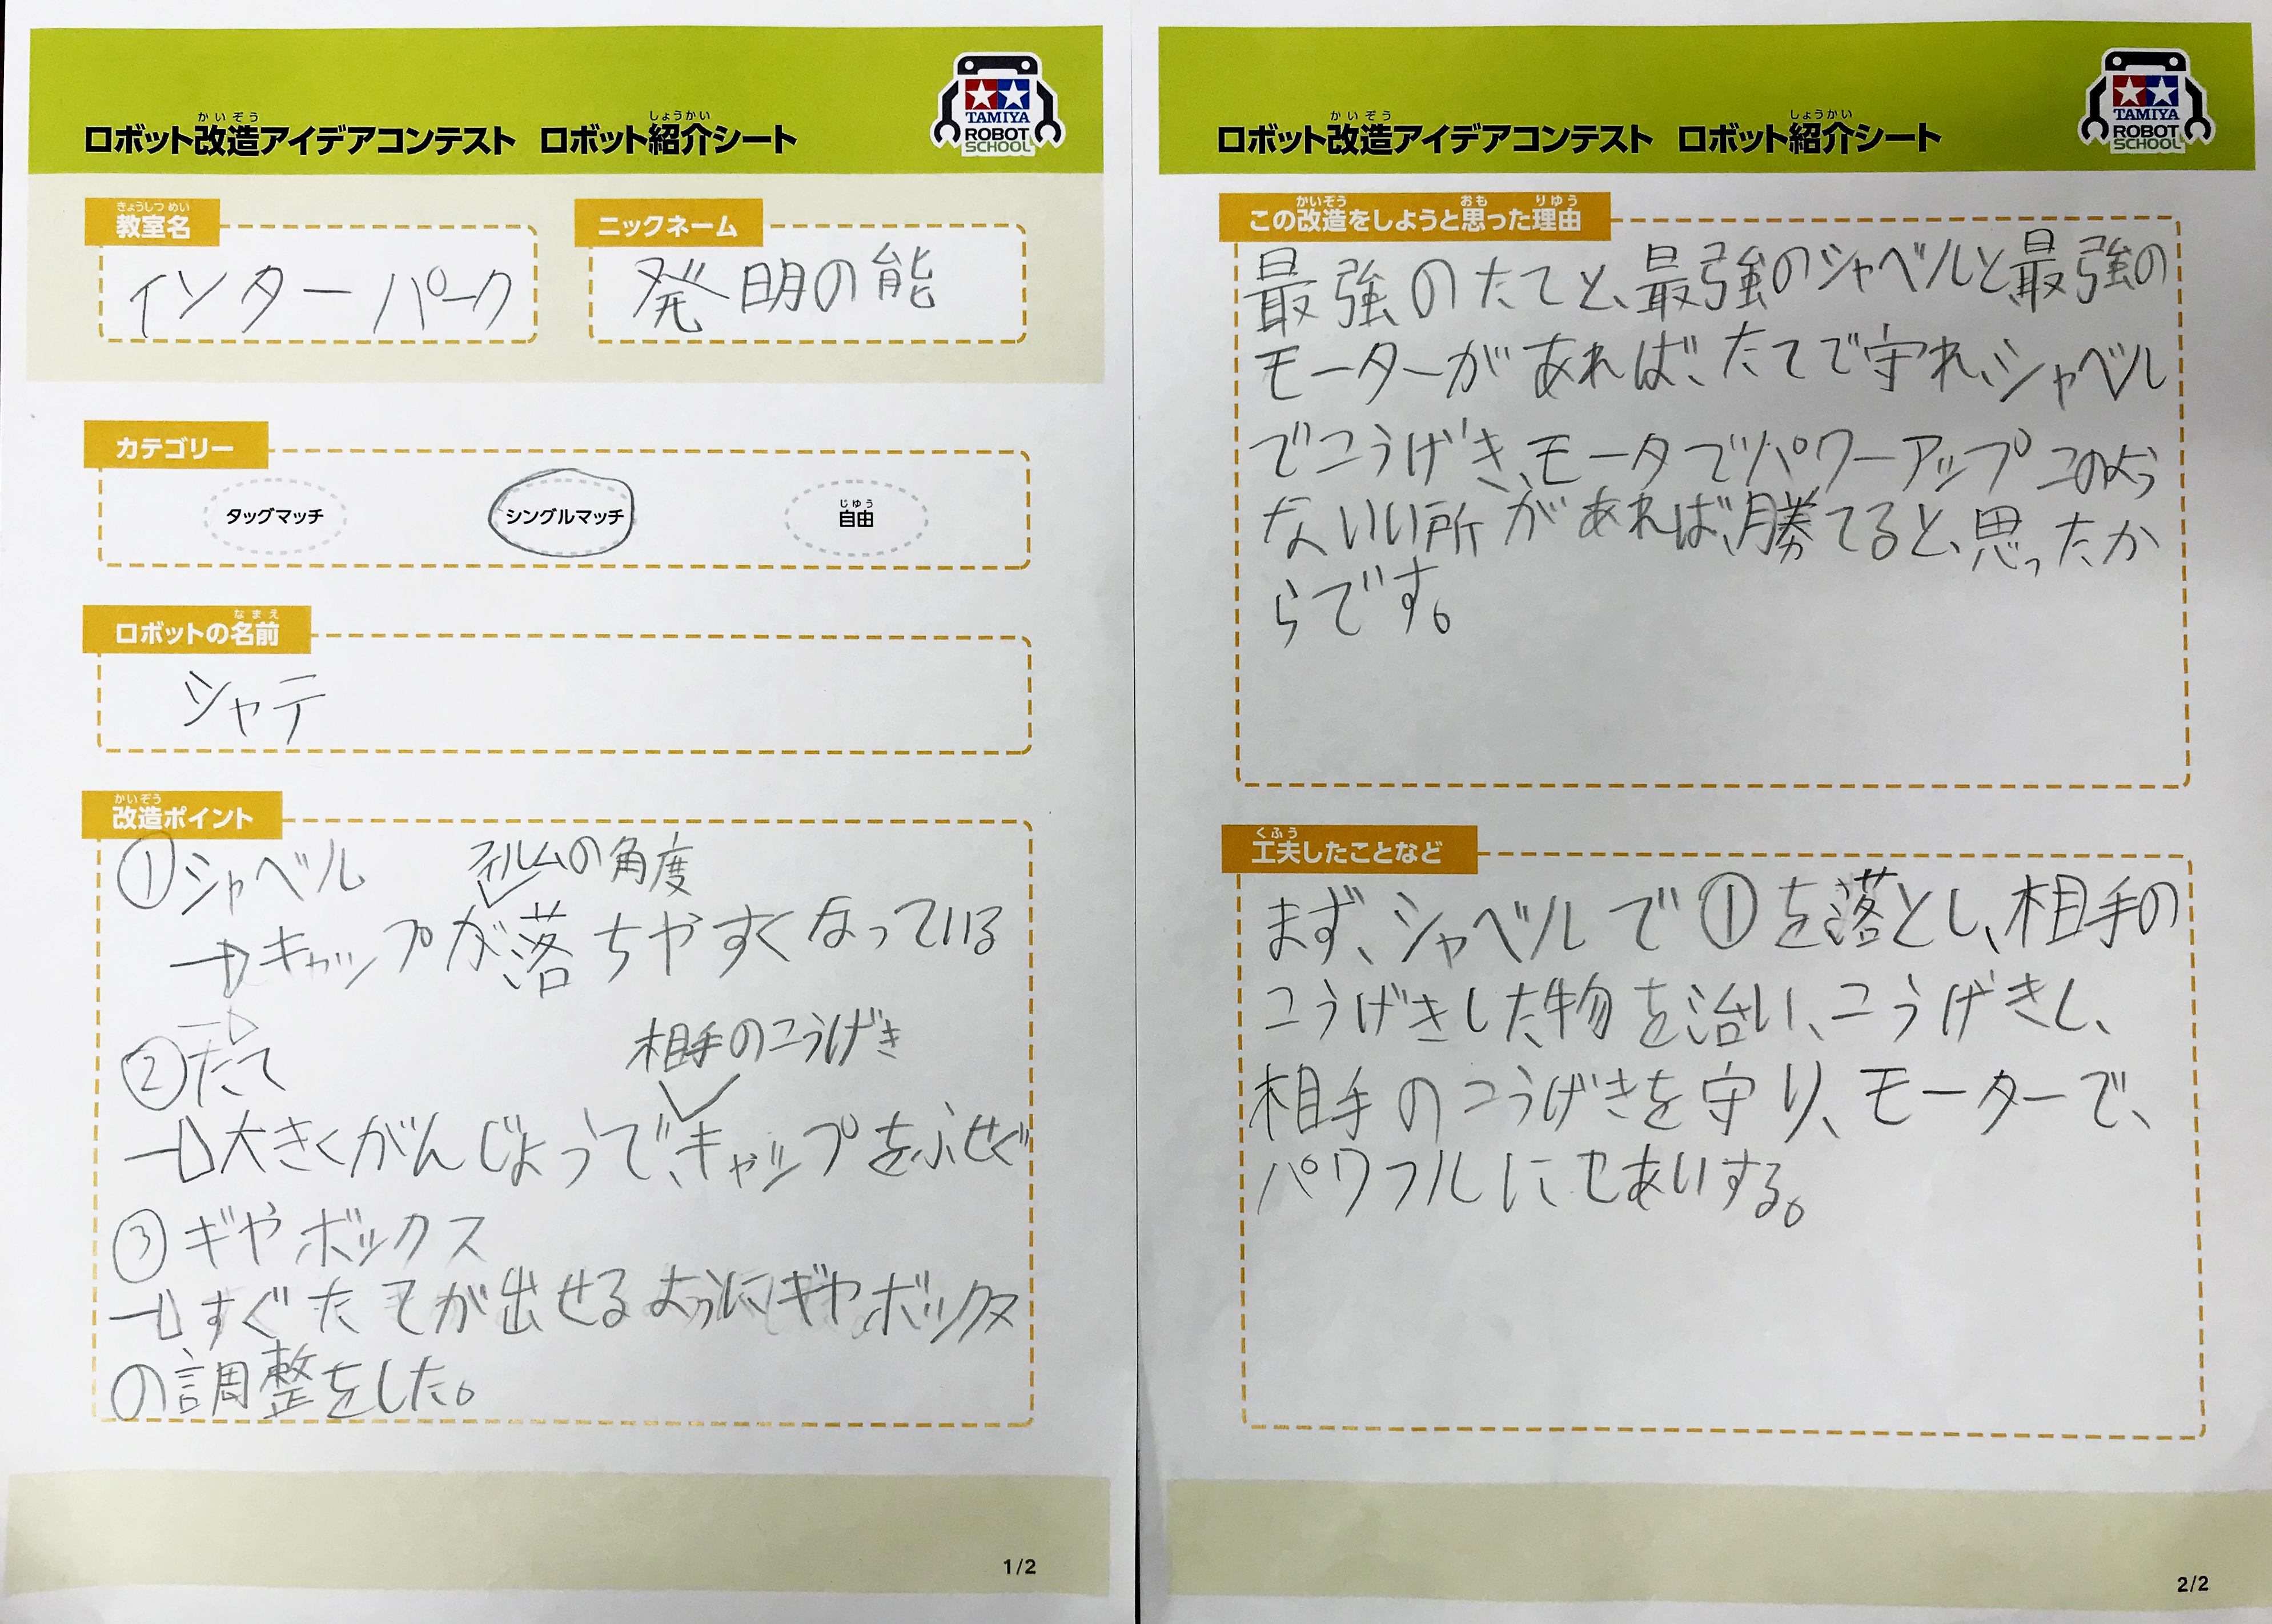 かいぞう しょうかい
ロボット改造アイデアコンテスト ロボット紹介シート
TAMIYA
ROBOT
SCHOOL
きょうしつ めい
教室名
インターパーク
ニックネーム
発明の能
カテゴリー
タッグマッチ
シングルマッチ
じゆう
自由
なまえ
ロボットの名前
シャテ
かいぞう
改造ポイント
①シャベル
フィルムの角度
→キャップが落ちやすくなっている
②たて
相手のこうげき
→大きくがんじょうで、キャップをふせぐ
③ギヤボックス
→すぐたてが出せるようにギヤボックス
の調整をした。
1/2
かいぞう しょうかい
ロボット改造アイデアコンテスト ロボット紹介シート
TAMIYA
ROBOT
SCHOOL
かいぞう おも りゆう
この改造をしようと思った理由
最強のたてと、最強のシャベルと、最強の
モーターがあれば、たてで守れ、シャベル
でこうげき、モータでパワーアップこのよう
ないい所があれば、勝てると、思ったか
らです。
くふう
工夫したことなど
まず、シャベルで①を落とし、相手の
こうげきした物を治い、こうげきし、
相手のこうげきを守り、モーターで、
パワフルにせあいする。
2/2